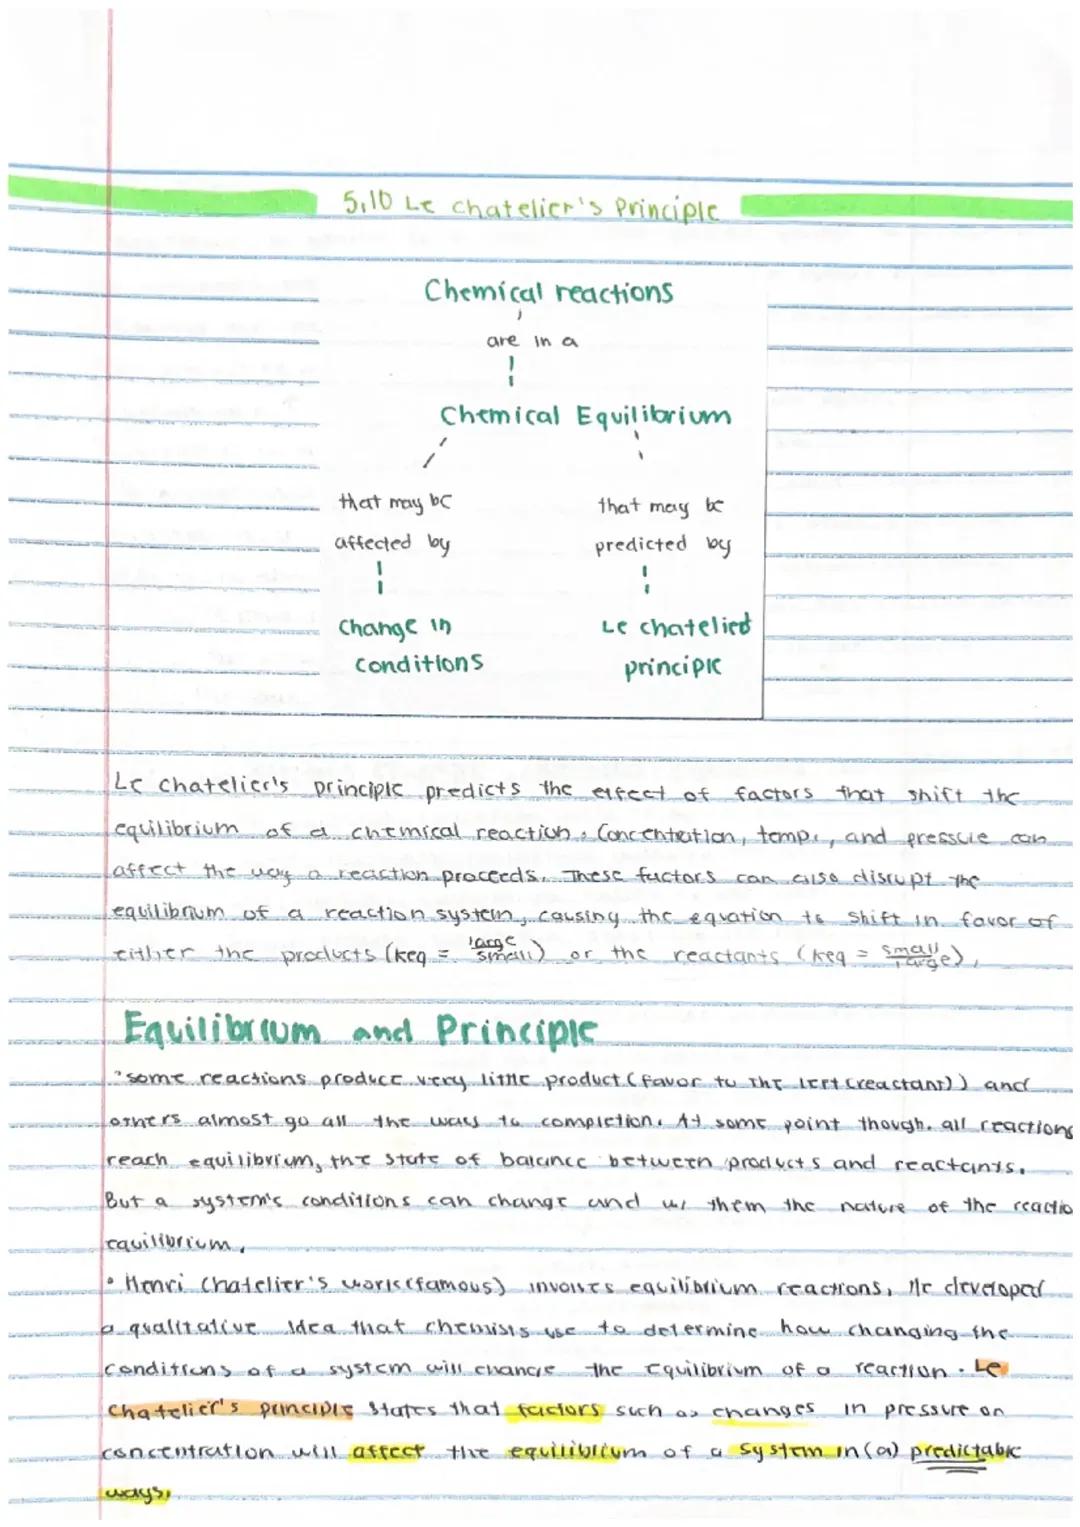 5.10 Le chatelier's Principle
Chemical reactions
are in a
Chemical Equilibrium
that may be
affected by
that may be
predicted by
Change in
conditions
Le chatelied
principle
Le chatelier's principle predicts the effect of factors that shift the
equilibrium of a chemical reaction. Concentration, temp., and pressure can
affect the way a reaction proceeds. These factors can also disrupt the
equilibrium of a reaction system, causing the equation to shift in favor of
either the products (keq = large/small) or the reactants (keq = small/large).
Equilibrium and Principle
• some reactions produce very little product (favor to the left (reactant)) and
others almost go all the way to completion. At some point though, all reactions
reach equilibrium, the state of balance between products and reactants.
But a system's conditions can change and w/ them the nature of the reactio
equilibrium.
• Henri Chatelier's work (famous) involves equilibrium reactions. He developed
a qualitative idea that chemists use to determine how changing the
conditions of a system will change the equilibrium of a reaction. Le
chatelier's principle states that factors such as changes in pressure or
concentration will affect the equilibrium of a system in (a) predictable
ways.